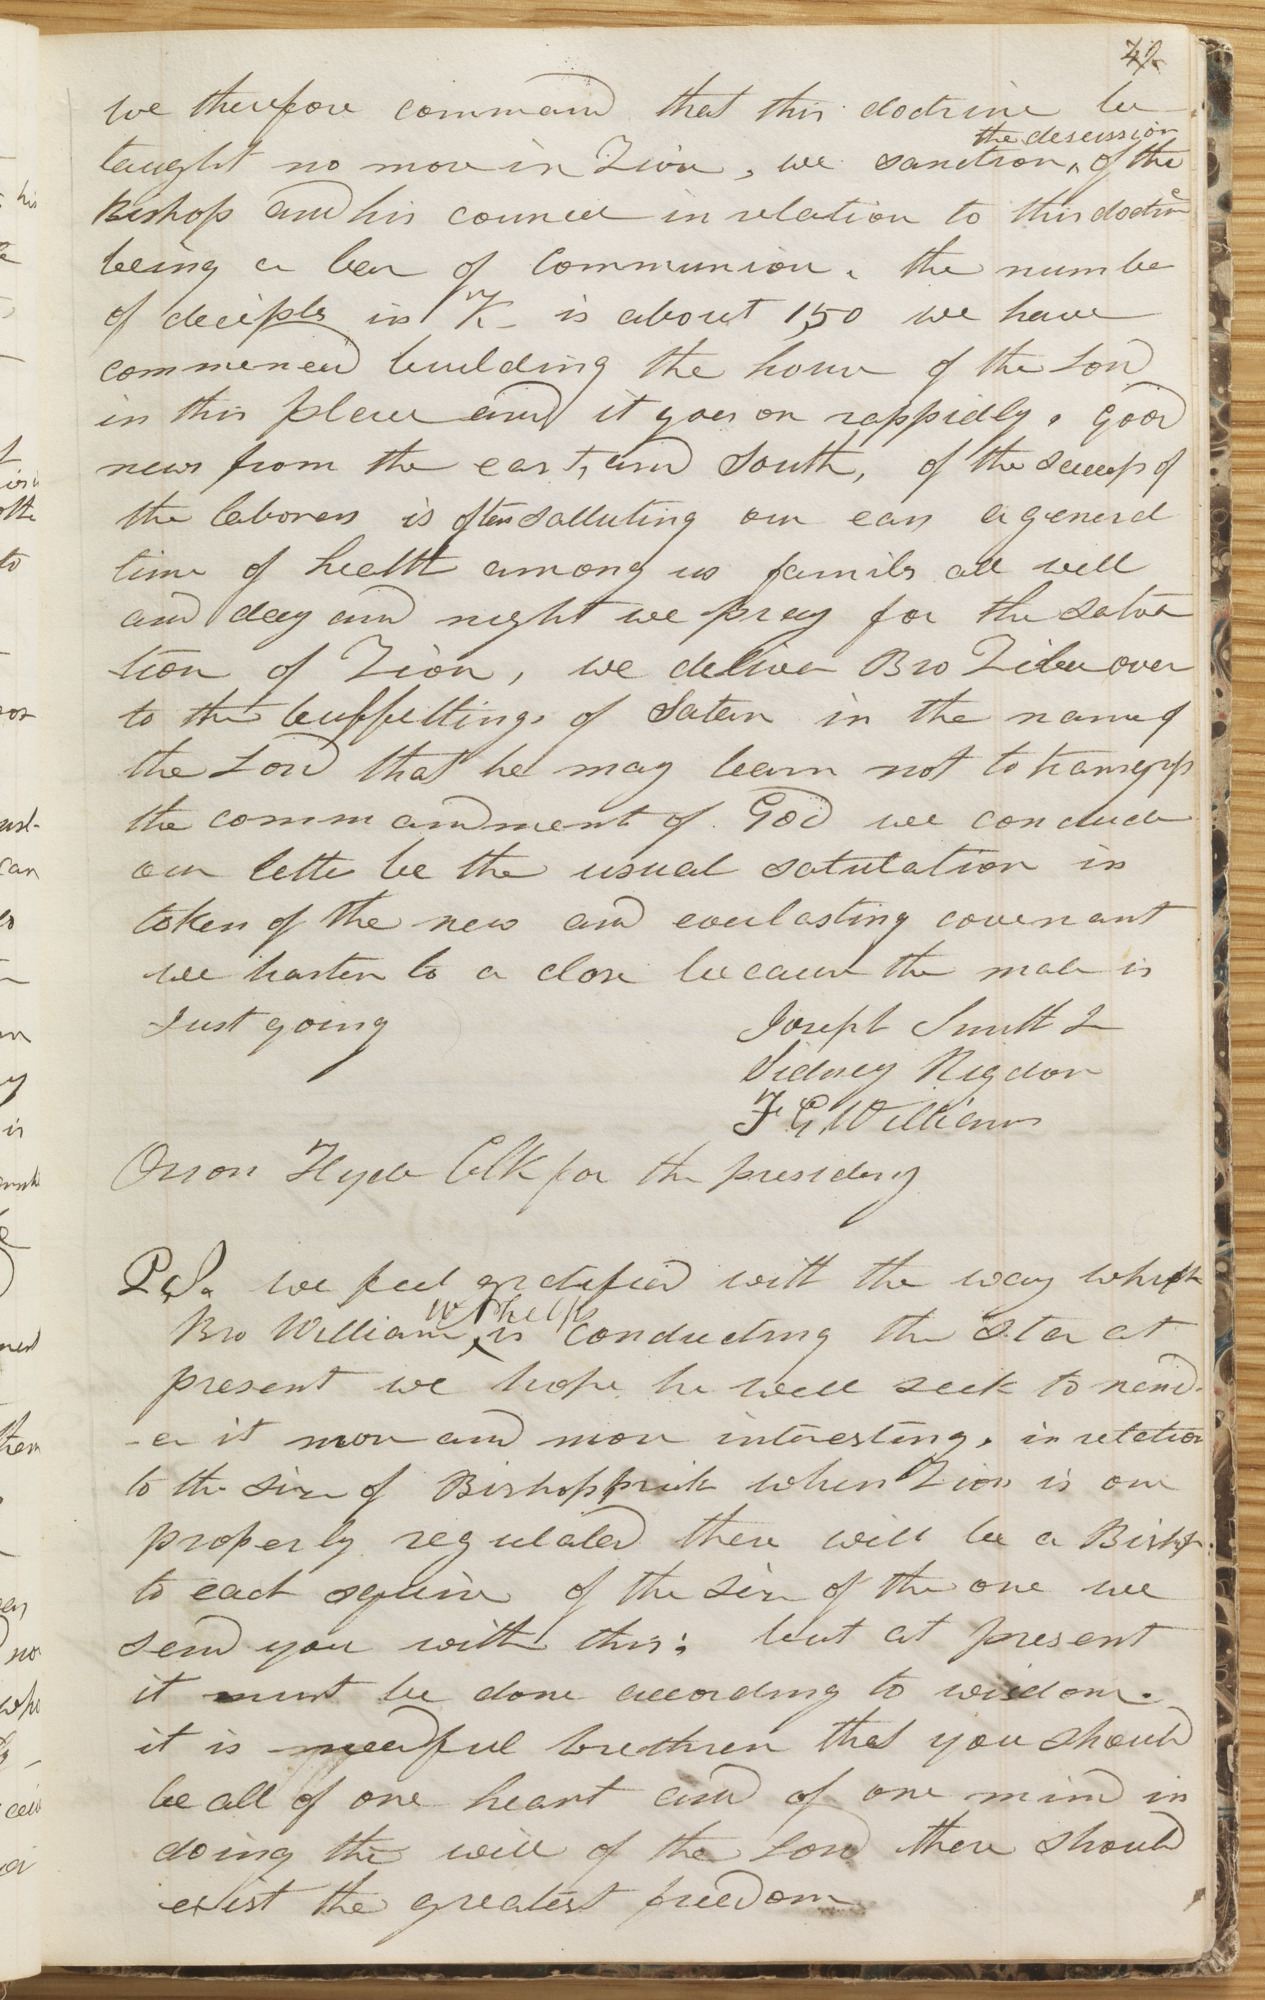 49
we therefore command that this doctrine be
taught no more in Zion, we sanction the descission of the
Bishop and his councel in relation to this doctrine
being a bar of communion. the numbe
of deciples in K— is about 150 we have
commenced building the house of the Lord
in this place and it goes on rappidly. good
news from the east, and South, of the success of
the laborers is often salluting our ears a general
time of health among us families all well
and day and night we pray for the salva
tion of Zion, we deliver Bro Ziba over
to the buffettings of Satan in the name of
the Lord that he may learn not to transgress
the commandments of God we conclude
our letter be the usual salutation in
token of the new and everlasting covenant
we hasten to a close because the male is
Just going
Joseph Smith Jr
Sidney Rigdon
F G Williams
Orson Hyde Clk for the presidency
P.S. we feel gratified with the way which
Bro William W Phelps is conducting the Star at
present we hope he will seek to rend-
-er it more and more interesting. in relation
to the size of Bishopprick when Zion is once
properly regulated there will be a Bishop
to each square of the size of the one we
send you with this; but at present
it must be done according to wisdom.
it is needful brethren that you should
be all of one heart and of one mind in
doing the will of the Lord there should
exist the greatest freedom